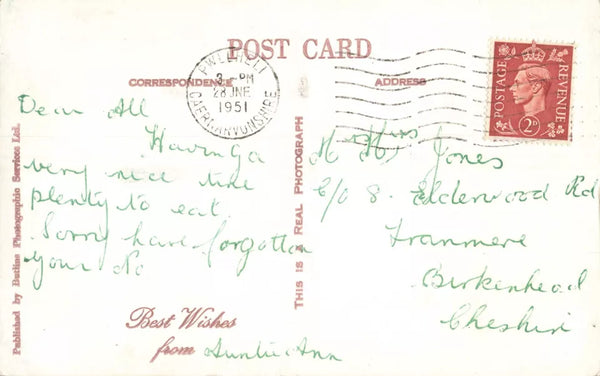 POST CARD
CORRESPONDENCE
ADDRESS
PWLLHELI
3 - PM
28 JNE
1951
CAERNARVONSHIRE
POSTAGE
REVENUE
2D
Dear All
Having a
very nice time
plenty to eat.
Sorry have forgotten
your No
Best Wishes
from Auntie Ann
Published by Butlins Photographic Services Ltd.
THIS IS A REAL PHOTOGRAPH
Miss Jones
C/O 8. Elderwood Rd
Tranmere
Birkenhead
Cheshire